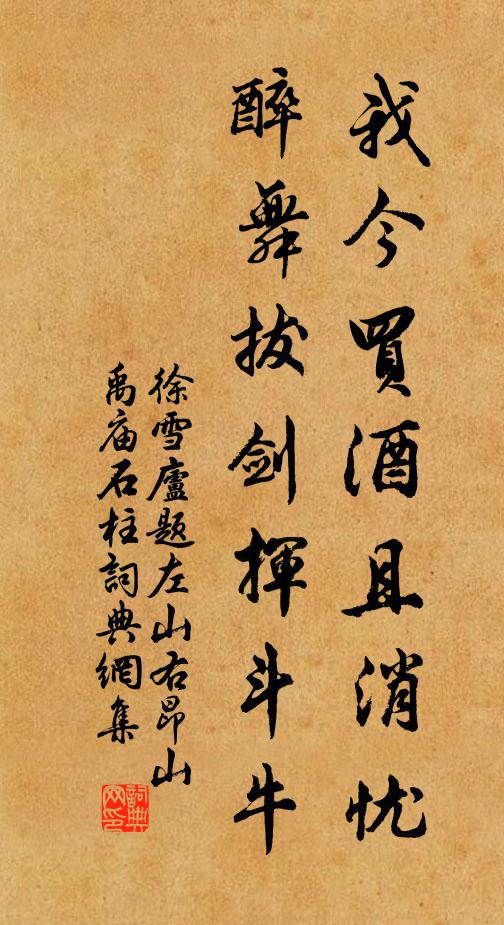 我今買酒且消忧
醉舞拔剑揮斗牛
徐雪廬题左山右昂山
禹庙石柱詞典網集
詞典网印